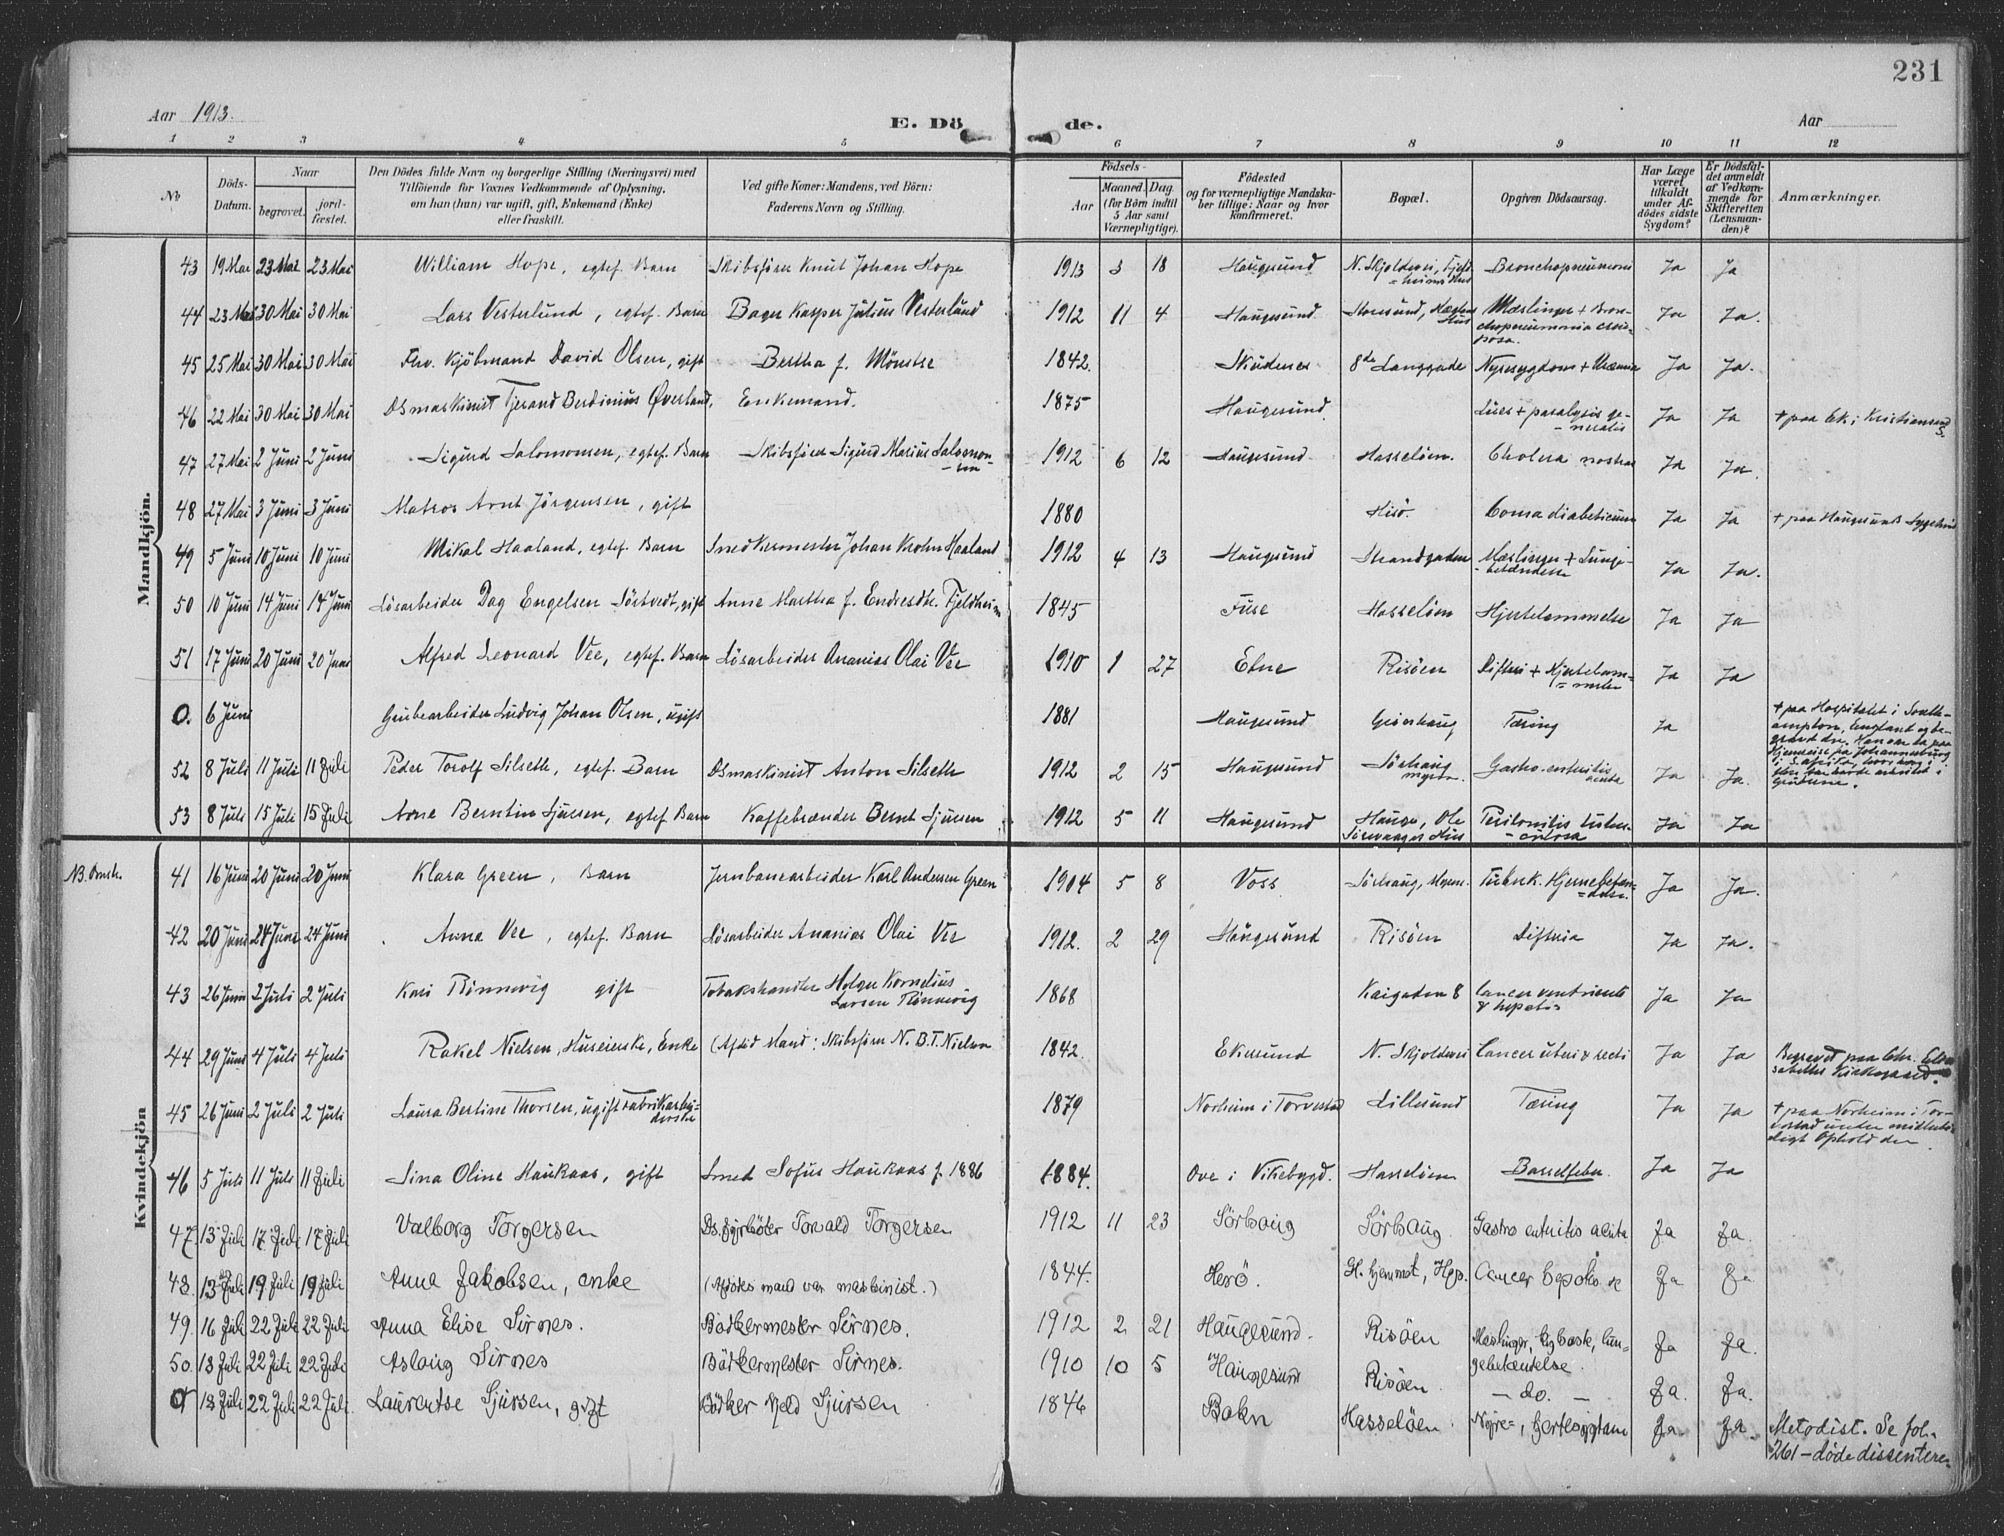 231
Aar 1913.
E. Dö de.
Aar
1 2 3 4 5 6 7 8 9 10 11 12
No
Döds-Datum.
Naar
begrovet.
jord-fæstet.
Den Dödes fulde Navn og borgerlige Stilling (Næringsvei) med
Tilföiende for Voxnes Vedkommende af Oplysning,
om han (hun) var ugift, gift, Enkemand (Enke)
eller fraskilt.
Ved gifte Koner: Mandens, ved Börn:
Faderens Navn og Stilling.
Födsels-
Aar
Maaned. Dag.
(for Börn indtil
5 Aar samt
Værnepligtige).
Födested
og for værnepligtige Mandska-
ber tillige: Naar og hvor
konfirmeret.
Bopæl.
Opgiven Dödsaarsag.
Har Læge
været
tilkaldt
under Af-
dödes sidste
Sygdom?
Er Dödsfal-
det anmeldt
af Vedkom-
mende for
Skifteretten
(Lensman-
den)?
Anmærkninger.
Mandkjön.
43 19 Mai 23 Mai 23 Mai William Hope, egtef. Barn Skibsfører Knut Johan Hope 1913 3 18 Haugesund N. Skjoldevei, Bronchopneumoni Ja Ja
44 23 Mai 30 Mai 30 Mai Lars Vesterlund, egtef. Barn Bager Kasper Julius Vesterlund 1912 11 4 Haugesund Hus Mæslinger + Bron-
chopneumonia crou-
posa. Ja Ja.
45 25 Mai 30 Mai 30 Mai Fhv. Kjøbmand David Olsen, gift Bertha f. 1842. Skudenes 8de Langgade Nyresygdom + Uræmia Ja Ja.
46 22 Mai 30 Mai 30 Mai Dsmaskinist Tjerand Berdinius Øverland, Enkemand. 1875 Haugesund Lues + paralysis ge-
neralis Ja Ja + paa i Kristiansund
47 27 Mai 2 Juni 2 Juni Sigurd Salomonsen, egtef. Barn Skibsfører Sigurd Marius Salomon-
sen 1912 6 12 Haugesund Hasseløen. Cholera nostras Ja Ja.
48 27 Mai 3 Juni 3 Juni Matros Arnt Jørgensen, gift 1880 Hisø. Coma diabeticum Ja Ja + paa Haugesunds Sygehus
49 5 Juni 10 Juni 10 Juni Mikal Haaland, egtef. Barn Snedkermester Johan Krohn Haaland 1912 4 13 Haugesund Strandgaden Mæslinger + Lunge-
betændelse Ja Ja.
50 10 Juni 14 Juni 14 Juni Løsarbeider Dag Engelsen Sörtvedt, gift Anne Martha f. Endresdtr. Fjeldheim 1845 Fuse Hasseløen Hjertelammelse Ja Ja
51 17 Juni 20 Juni 20 Juni Alfred Leonard Vee, egtef. Barn Løsarbeider Ananias Olai Vee 1910 1 27 Etne Risøen Difteri + Hjertelam-
melse Ja Ja
0. 6 Juni Grubearbeider Ludvig Johan Olsen, ugift 1881 Haugesund Tæring Ja + paa Hospitalet i South-
ampton, England og be-
gravet der. Han var da paa
Hjemreise fra Johannesburg
i S. Afrika, hvor han i
flere Aar havde arbeidet i
Gruberne.
52 8 Juli 11 Juli 11 Juli Peder Torolf Silseth, egtef. Barn Dsmaskinist Anton Silseth 1912 2 15 Haugesund Sörhaug Gastro-enteritis
acuta Ja Ja.
53 8 Juli 15 Juli 15 Juli Arne Berntin Sjursen, egtef. Barn Kaffebrænder Bernt Sjursen 1912 5 11 Haugesund Hauge, Ole
Sørvaages Hus Peritonitis tuber-
culosa Ja Ja
Kvindekjön
NB.
41 16 Juni 20 Juni 20 Juni Klara Green, Barn Jernbanearbeider Karl Andersen Green 1904 5 8 Voss Sørhaug, Tuberk. Hjernebetæn-
delse. Ja Ja.
42 20 Juni 24 Juni 24 Juni Anna Vee, egtef. Barn Løsarbeider Ananias Olai Vee 1912. 2 29 Haugesund Risøen Difteria Ja Ja.
43 26 Juni 2 Juli 2 Juli Kari Rönnevig gift Tobakshandler Holger Kornelius
Larsen Rönnevig 1868 Kaigaden 8 Cancer ventriculi
& hepatis Ja Ja
44 29 Juni 4 Juli 4 Juli Rakel Nielsen, Huseierske, Enke (Afdød Mand: Skibsfører N. B. T. Nielsen 1842. Ekersund N. Skjoldevei Cancer uteri & recti Ja Ja Begravet paa Chr. Elisa-
beths Kirkegaard.
45 26 Juni 2 Juli 2 Juli Laura Bertine Thorsen, ugift Fabrikarbei-
derske 1879 Norheim i Torvestad Lillesund Tæring Ja Ja + paa Norheim i Tor-
vestad under midlerti-
digt Ophold der
46 5 Juli 11 Juli 11 Juli Lina Oline Haukaas, gift Smed Sofus Haukaas f. 1886 1884. Ove i Vikebygd. Hasseløen Barselfeber Ja Ja
47. 13 Juli 17 Juli 17 Juli Valborg Torgersen Ds.fyrböter Torvald Torgersen 1912 11 23 Sörhaug Sörhaug. Gastro enteritis acuta Ja Ja.
48. 13 Juli 19 Juli 19 Juli Anna Jakobsen, enke (Afdødes mand var maskinist.) 1844. Herö. Cancer hepatis Ja Ja
49. 16 Juli 22 Juli 22 Juli Anna Elise Sirnes. Bödkermester Sirnes. 1912 2 21 Haugesund. Risöen Mæslinger, kighoste, lun-
gebetændelse. Ja Ja.
50. 18 Juli 22 Juli 22 Juli Aslaug Sirnes Bödkermester Sirnes. 1910 10 5 Haugesund Risöen — do. — Ja. Ja.
0 18 Juli 22 Juli 22 Juli Laurentse Sjursen, gift Bödker Sjursen 1846 Bokn Hasselöen. Nyre-, hjertesygdom Ja. Ja. Metodist. Se fol.
261 – døde dissentere.